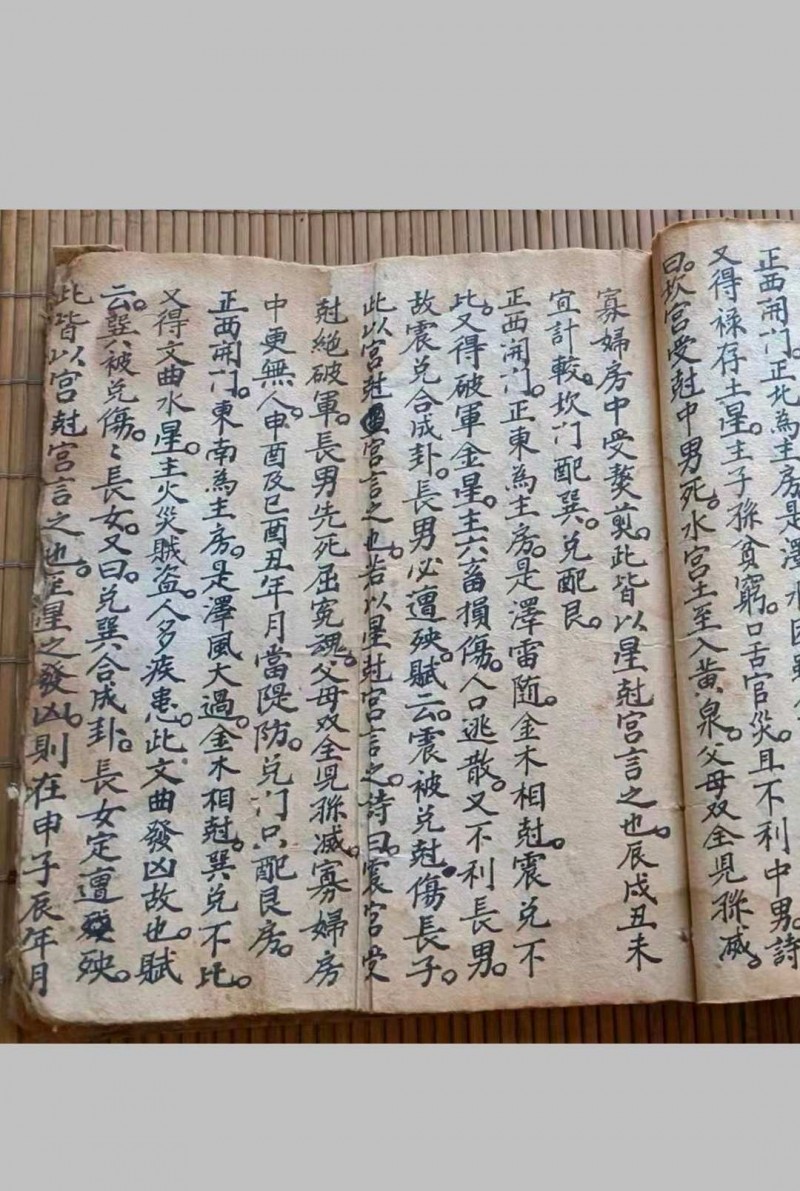 正西開門。正北為主房。是澤水困
又得祿存土星。主子孫貧窮。口舌官災。且不利中男。詩
曰。坎宮受尅中男死。水宮土至入黃泉。父母双全見孫滅。
寡婦房中受熬煎。此皆以星尅宮言之也。辰戌丑未
宜計較。坎门配巽。兌配艮。
正西開门。正東為主房。是澤雷随。金木相尅。震兌不
比。又得破軍金星。主六畜損傷。人口逃散。又不利長男。
故震兌合成卦。長男必遭殃。賦云。震被兌尅。傷長子。
此以宮尅宮言之也。若以星尅宮言之。詩曰。震宮受
尅絕破軍。長男先死屈寃魂。父母双全見孫滅。寡婦房
中更無人。申酉及巳酉丑年月當隄防。兌门只配艮房。
正西開门。東南為主房。是澤風大過。金木相尅。巽兌不比。
又得文曲水星。主火災賊盗。人多疾患。此文曲發凶故也。賦
云。巽被兌傷。〻長女。又曰。兌巽合成卦。長女定遭殃。
此皆以宮尅宮言之也。至星之發凶。則在申子辰年月